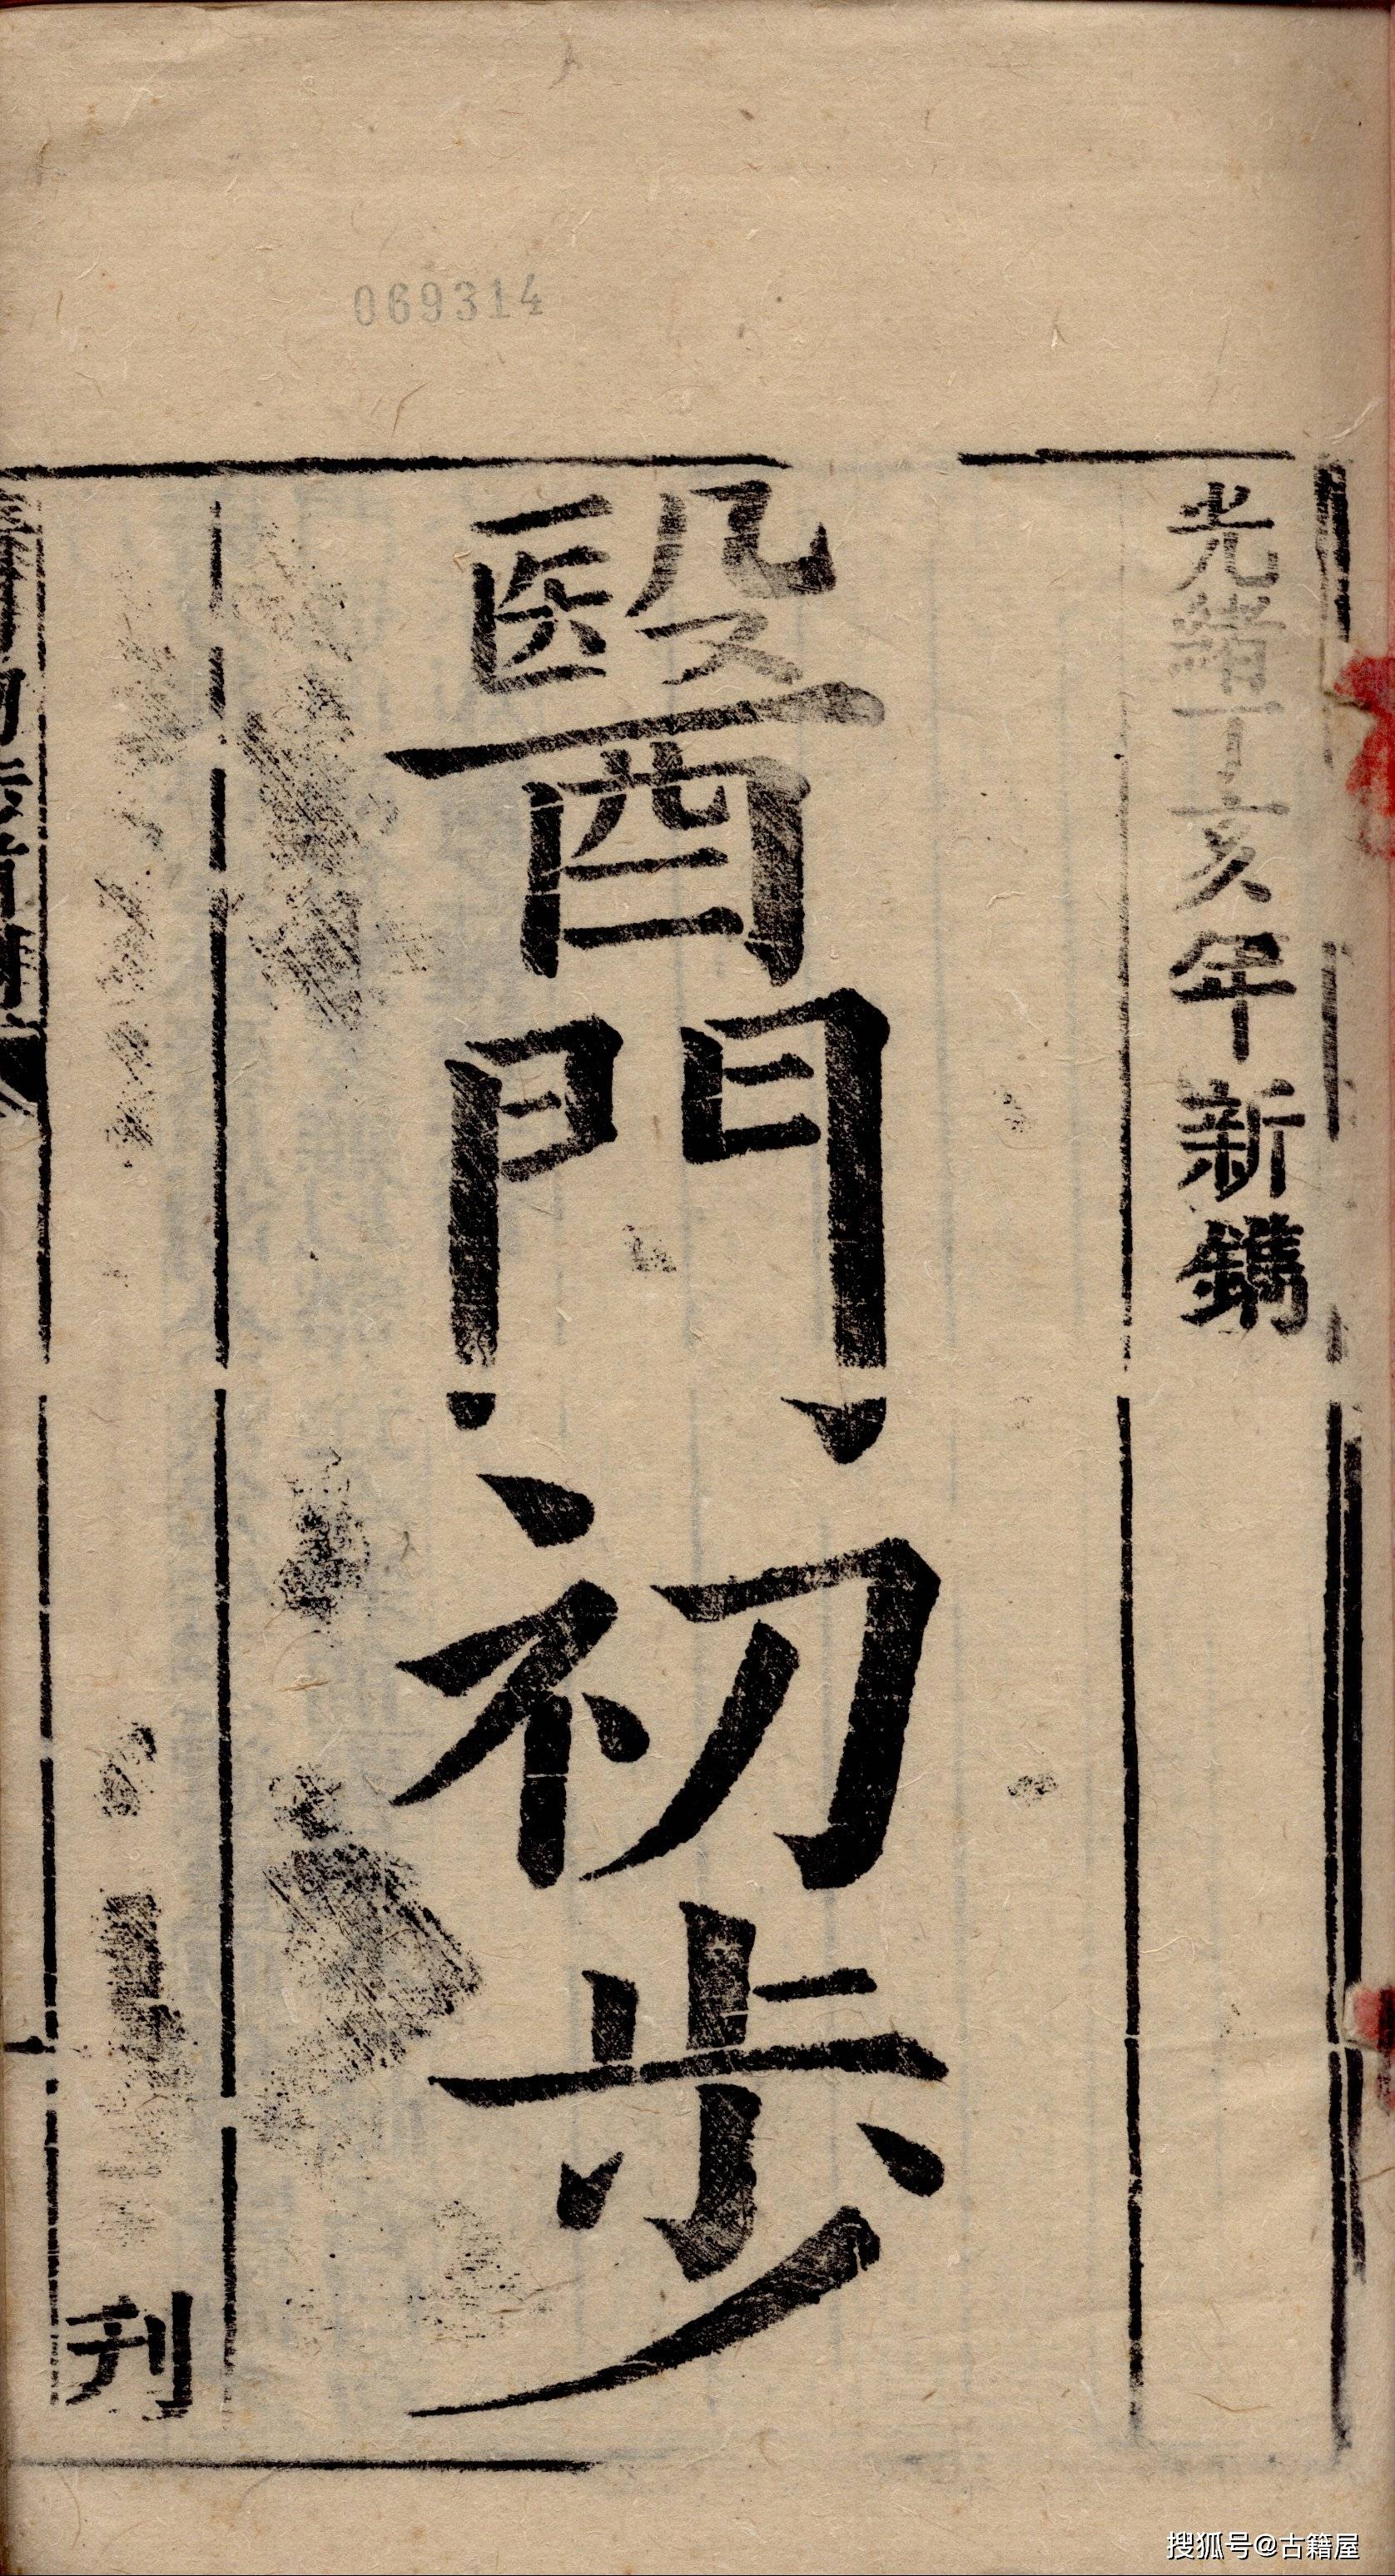 069314
光緒丁亥年新鐫
醫門初步
刊
搜狐号@古籍屋